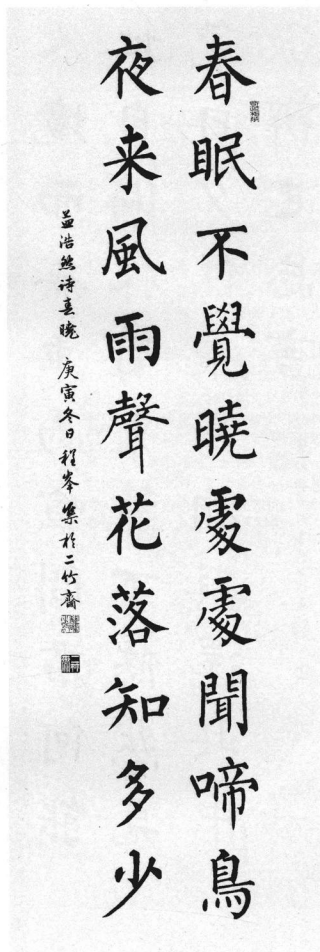 春眠不覺曉處處聞啼鳥
夜来風雨聲花落知多少
孟浩然诗春曉 庚寅冬日程峯集於二竹齋